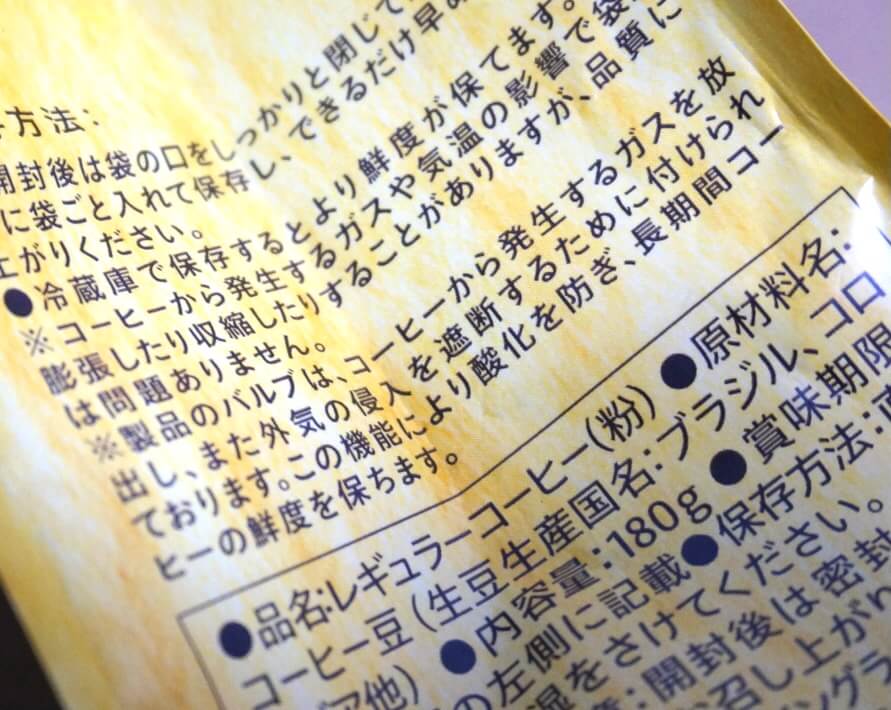 方法:
開封後は袋の口をしっかりと閉じて
に袋ごと入れて保存し、できるだけ早め
上がりください。
●冷蔵庫で保存するとより鮮度が保てます。
※コーヒーから発生するガスや気温の影響で袋
膨張したり収縮したりすることがありますが、品質に
は問題ありません。
※製品のバルブは、コーヒーから発生するガスを放
出し、また外気の侵入を遮断するために付けられ
ております。この機能により酸化を防ぎ、長期間コー
ヒーの鮮度を保ちます。
●品名:レギュラーコーヒー(粉)●原材料名:
コーヒー豆(生豆生産国名:ブラジル、コロ
ア他)●内容量:180g●賞味期限
の左側に記載●保存方法:
湿をさけてください。
:開封後は密封
召し上がり
ングラ